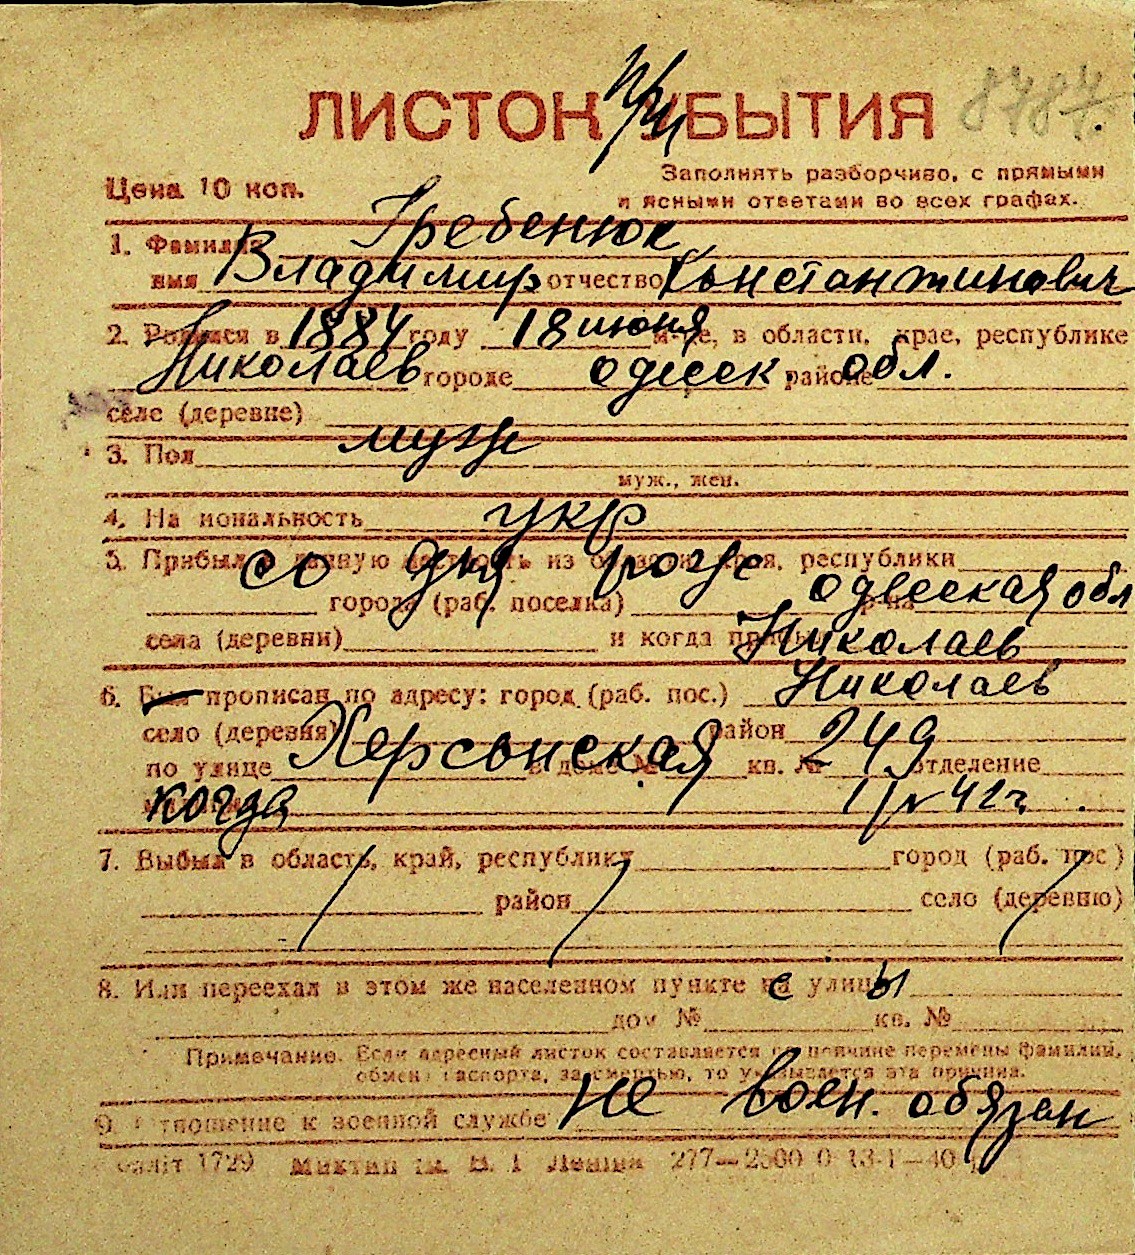 ЛИСТОК УБЫТИЯ 8787.
Цена 10 коп. Заполнять разборчиво, с прямыми
и ясными ответами во всех графах.
1. Фамилия Гребенюк
имя Владимир отчество Константинович
2. Родился в 1884 году 18 июня м-це, в области, крае, республике
Николаев городе одесск. районе обл.
селе (деревне)
3. Пол муж
муж., жен.
4. Национальность укр
5. Прибыл в данную местность из области, края, республики
со дня рожд одесская обл
города (раб. поселка) р-на
села (деревни) и когда прибыл Николаев
6. Был прописан по адресу: город (раб. пос.) Николаев
село (деревня) район
по улице Херсонская в доме № 249 кв. № отделение
когда 41г.
7. Выбыл в область, край, республику город (раб. пос)
район село (деревню)
8. Или переехал в этом же населенном пункте с улицы
дом № кв. №
Примечание. Если адресный листок составляется по причине перемены фамилии,
обмена паспорта, за смертью, то указывается эта причина.
9. Отношение к военной службе не воен. обязан
1729 В. І Леніна 277—2500 0 13-І—40